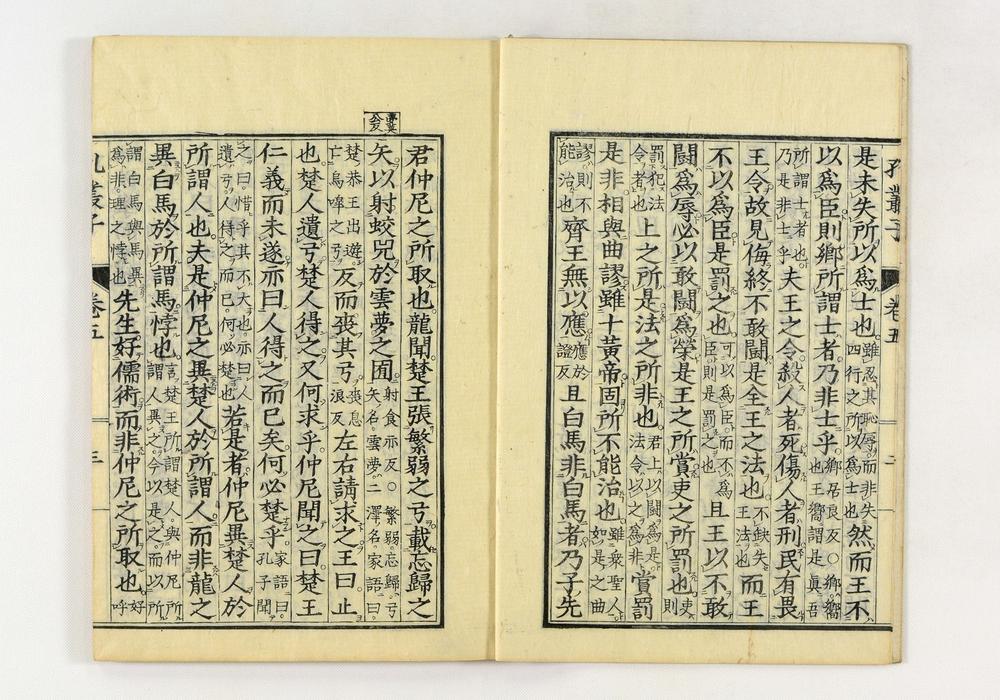 孔叢子 卷五 二
是未失所以爲士也雖忍其恥辱而非失四行之所以爲士也然而王不
以爲臣則鄉所謂士者乃非士乎鄉居良反○鄉嚮也王嚮謂是眞吾
所謂士者也乃是非士乎夫王之令殺人者死傷人者刑民有畏
王令故見侮終不敢鬪是全王之法也不缺失王法也而王
不以爲臣是罰之也可以爲臣而不爲臣則是罰之也且王以不敢
鬪爲辱必以敢鬪爲榮是王之所賞吏之所罰也吏則
罰犯法令者也上之所是法之所非也君上以鬪爲是法令以之爲非賞罰
是非相與曲謬雖十黃帝固所不能治也雖衆聖人如是之曲
謬則不能治也齊王無以應應於證反且白馬非白馬者乃子先
君仲尼之所取也龍聞楚王張繁弱之弓載忘歸之
矢以射蛟兕於雲夢之囿射食亦反○繁弱忘歸弓矢名雲夢二澤名家語曰
楚恭王出遊亡烏嘷之弓反而喪其弓喪息浪反左右請求之王曰止
也楚人遺弓楚人得之又何求乎仲尼聞之曰楚王
仁義而未遂亦曰人得之而已矣何必楚乎家語曰孔子聞
之曰惜乎其不大也亦曰人遺弓人得之而已何必楚也若是者仲尼異楚人於
所謂人也夫是仲尼之異楚人於所謂人而非龍之
異白馬於所謂馬悖也言楚王所謂楚人與仲尼所謂人異之今以是之而以所
謂白馬與馬異爲非理之悖也先生好儒術而非仲尼之所取也好呼
孔叢子 卷五 三